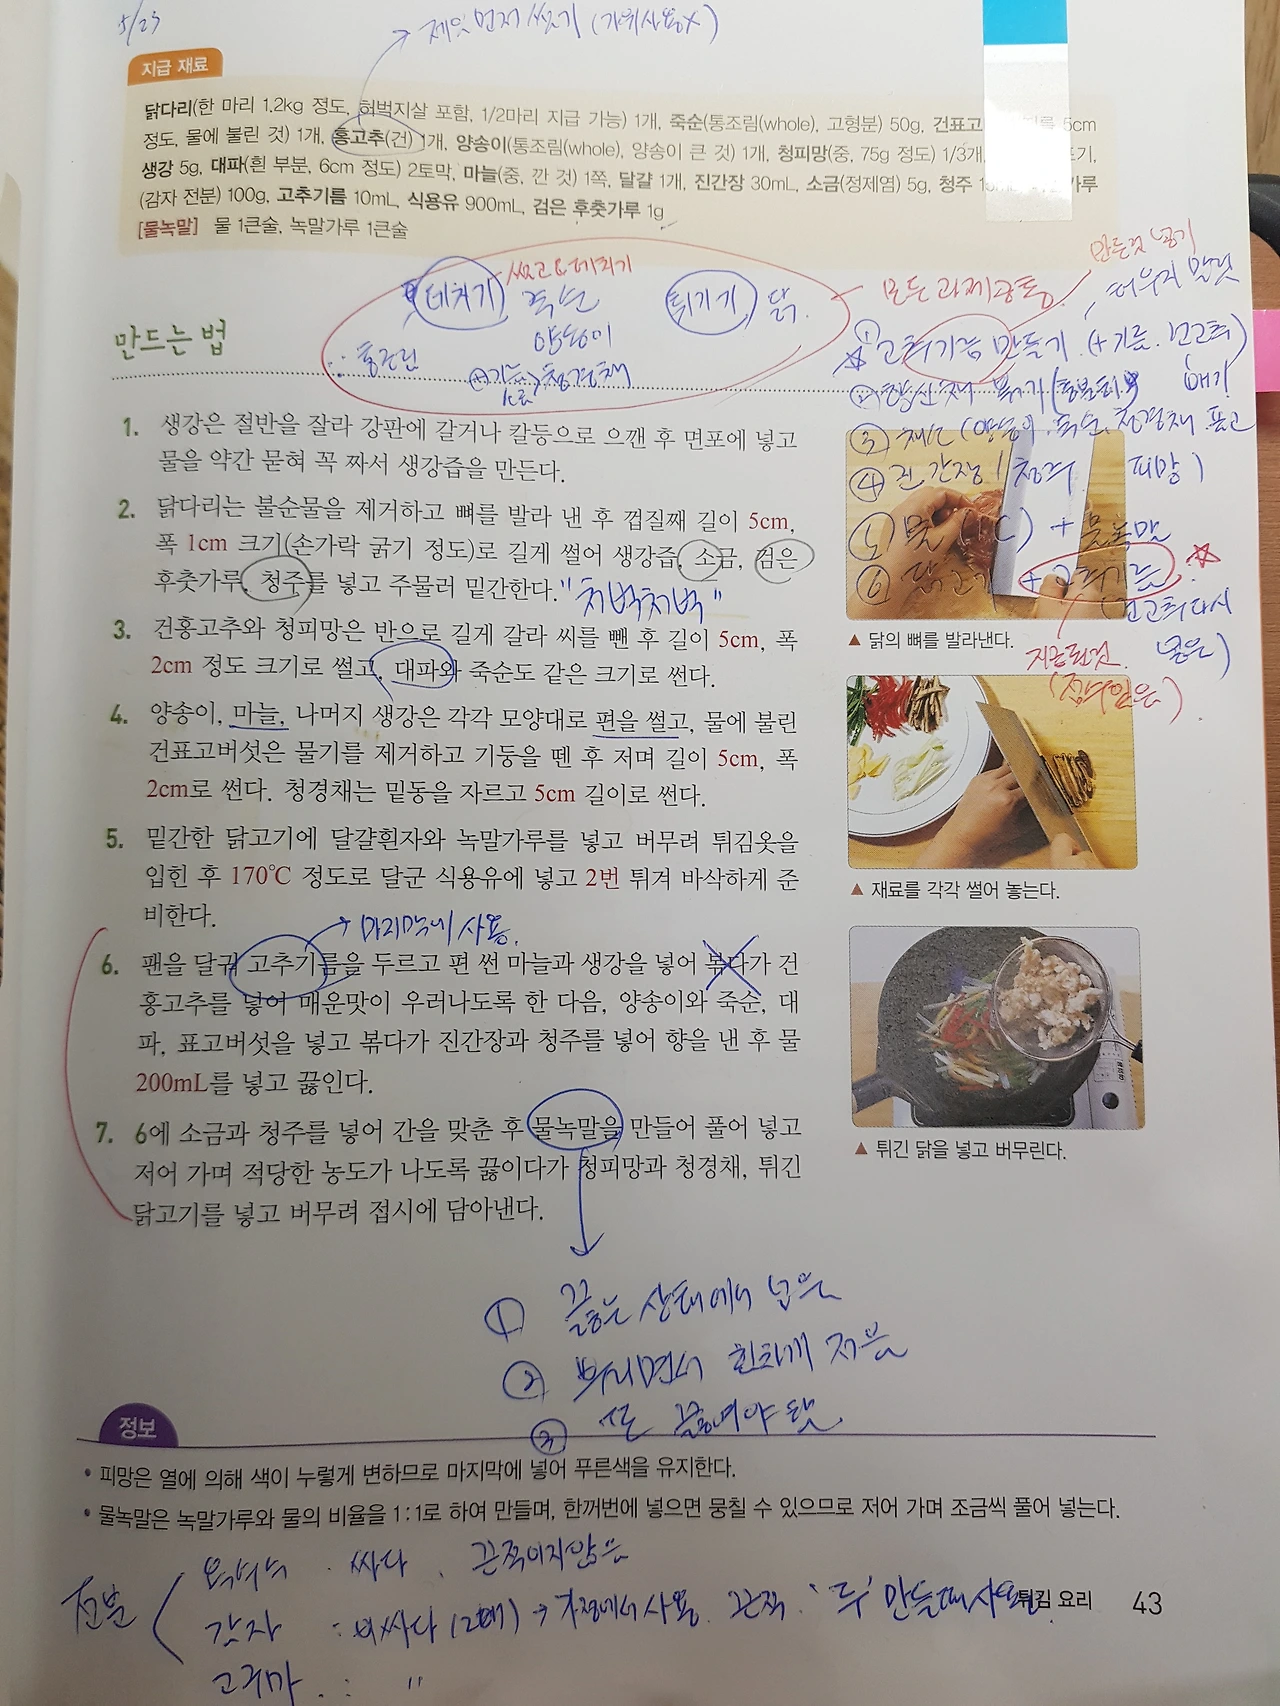 5/23
→ 제일 먼저 썰기 (가위사용X)
지급 재료
닭다리(한 마리 1.2kg 정도, 허벅지살 포함, 1/2마리 지급 가능) 1개, 죽순(통조림(whole), 고형분) 50g, 건표고 5cm
정도, 물에 불린 것) 1개, 홍고추(건) 1개, 양송이(통조림(whole), 양송이 큰 것) 1개, 청피망(중, 75g 정도) 1/3개,
생강 5g, 대파(흰 부분, 6cm 정도) 2토막, 마늘(중, 깐 것) 1쪽, 달걀 1개, 진간장 30mL, 소금(정제염) 5g, 청주
(감자 전분) 100g, 고추기름 10mL, 식용유 900mL, 검은 후춧가루 1g
[물녹말] 물 1큰술, 녹말가루 1큰술
썰고 & 데치기
데치기 죽순
양송이
청경채
통조림
튀기기 닭
모든 과제 공통
만든것 넣기
① 고추기름 만들기 (+기름. 건고추)
빼기
③ 채소 (양송이. 죽순. 청경채. 표고
④ 진간장 청주 피망)
⑤ 물 (1C) + 물녹말
⑥ 닭고기 + 고추기름
건고추 다시
넣음)
지급된것
만드는 법
1. 생강은 절반을 잘라 강판에 갈거나 칼등으로 으깬 후 면포에 넣고
물을 약간 묻혀 꼭 짜서 생강즙을 만든다.
2. 닭다리는 불순물을 제거하고 뼈를 발라 낸 후 껍질째 길이 5cm,
폭 1cm 크기(손가락 굵기 정도)로 길게 썰어 생강즙, 소금, 검은
후춧가루, 청주를 넣고 주물러 밑간한다. "처벅처벅"
3. 건홍고추와 청피망은 반으로 길게 갈라 씨를 뺀 후 길이 5cm, 폭
2cm 정도 크기로 썰고, 대파와 죽순도 같은 크기로 썬다.
4. 양송이, 마늘, 나머지 생강은 각각 모양대로 편을 썰고, 물에 불린
건표고버섯은 물기를 제거하고 기둥을 뗀 후 저며 길이 5cm, 폭
2cm로 썬다. 청경채는 밑동을 자르고 5cm 길이로 썬다.
5. 밑간한 닭고기에 달걀흰자와 녹말가루를 넣고 버무려 튀김옷을
입힌 후 170℃ 정도로 달군 식용유에 넣고 2번 튀겨 바삭하게 준
비한다.
→ 마지막에 사용.
6. 팬을 달궈 고추기름을 두르고 편 썬 마늘과 생강을 넣어 볶다가 건
홍고추를 넣어 매운맛이 우러나도록 한 다음, 양송이와 죽순, 대
파, 표고버섯을 넣고 볶다가 진간장과 청주를 넣어 향을 낸 후 물
200mL를 넣고 끓인다.
7. 6에 소금과 청주를 넣어 간을 맞춘 후 물녹말을 만들어 풀어 넣고
저어 가며 적당한 농도가 나도록 끓이다가 청피망과 청경채, 튀긴
닭고기를 넣고 버무려 접시에 담아낸다.
▲ 닭의 뼈를 발라낸다.
▲ 재료를 각각 썰어 놓는다.
▲ 튀긴 닭을 넣고 버무린다.
① 끓는 상태에서 넣음
② 뿌리면서 휜하게 저음
③ 끓여야 됨
정보
• 피망은 열에 의해 색이 누렇게 변하므로 마지막에 넣어 푸른색을 유지한다.
• 물녹말은 녹말가루와 물의 비율을 1:1로 하여 만들며, 한꺼번에 넣으면 뭉칠 수 있으므로 저어 가며 조금씩 풀어 넣는다.
전분
옥수수 . 싸다 . 끈적이지않음
감자 : 비싸다 (2배) → 가정에서 사용. 끈적 :
고구마 . : "
튀김 요리 43